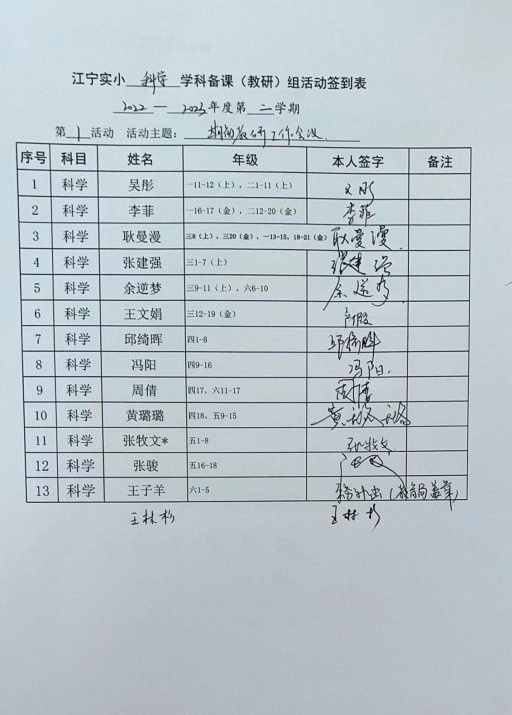 江宁实小 科学 学科备课（教研）组活动签到表
2022 — 2023 年度第 二 学期
第 1 活动 活动主题： 期初教研工作会议
序号 科目 姓名 年级 本人签字 备注
1 科学 吴彤 一11-12（上），二1-11（上）
2 科学 李菲 一16-17（金），二12-20（金） 李菲
3 科学 耿曼漫 三8（上），三20（金），一13-15，18-21（金） 耿曼漫
4 科学 张建强 三1-7（上） 张建强
5 科学 余逆梦 三9-11（上），六6-10 余逆梦
6 科学 王文娟 三12-19（金）
7 科学 邱绮晖 四1-8 邱绮晖
8 科学 冯阳 四9-16 冯阳
9 科学 周倩 四17、六11-17 周倩
10 科学 黄璐璐 四18、五9-15 黄璐璐
11 科学 张牧文* 五1-8 张牧文
12 科学 张骏 五16-18
13 科学 王子羊 六1-5 外出（教育局盖章）
王林杉 王林杉